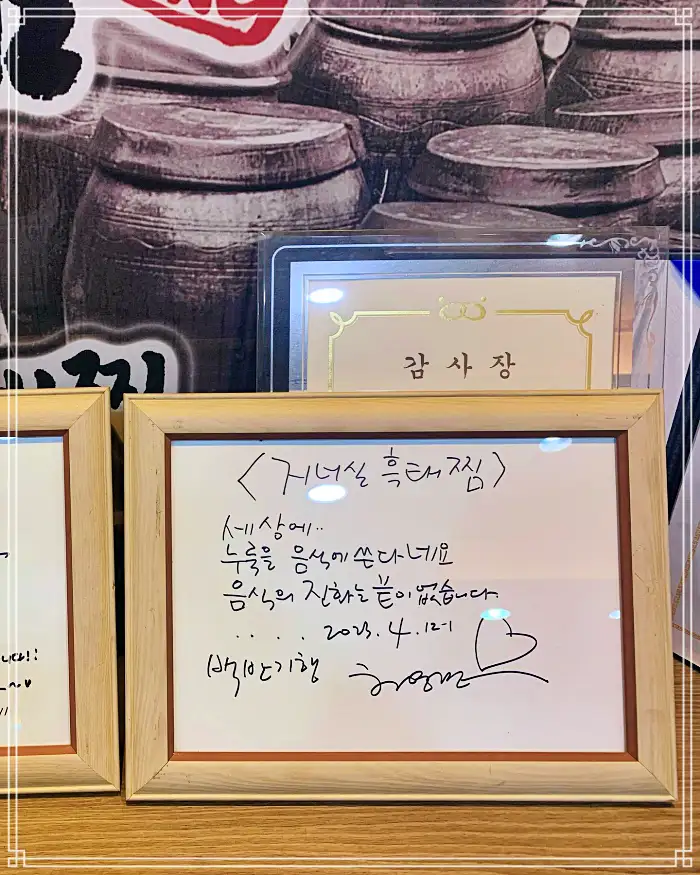 감 사 장
<거너실 흑태찜>
세상에..
누룩을 음식에 쓴다네요
음식의 진화는 끝이 없습니다.
.... 2023. 4. 12-1
백반기행 허영만
니다!!